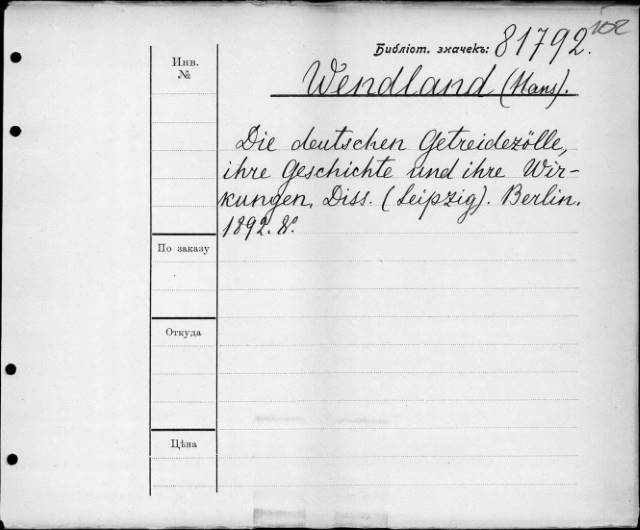 102
Библіот. значекъ: 81792.
Инв.
№
Wendland (Hans).
Die deutschen Getreidezölle,
ihre Geschichte und ihre Wir-
kungen. Diss. (Leipzig). Berlin.
1892. 8°.
По заказу
Откуда
Цѣна